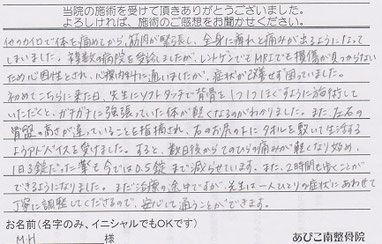 当院の施術を受けて頂きありがとうございました。
よろしければ、施術のご感想をお聞かせください。
他のカイロで体を痛めてから、筋肉が緊張し、全身に痺れと痛みが出るようになって
しまいました。複数の病院を受診しましたが、レントゲンでもMRIでも損傷が見つからない
ため心因性とされ、心療内科に通いましたが、症状が改善せず困っていました。
初めてこちらに来た日、先生にソフトタッチで背骨を1つ1つほぐすように施術して
いただくと、ガチガチに強張っていた体が軽くなるのがわかりました。また左右の
骨盤の高さが違っていることを指摘され、右のお尻の下にタオルを敷いて生活する
ようアドバイスを受けました。すると、数日後からひどい痛みが軽くなり始め、
1日3錠だった薬も今では0.5錠まで減らせています。また、2時間も歩くことが
できるようになりました。まだ治療の途中ですが、先生は一人ひとりの症状にあわせて
丁寧に調整してくださるので、安心して通うことができます。
お名前(名字のみ、イニシャルでもOKです)
M.H 様
あびこ南整骨院